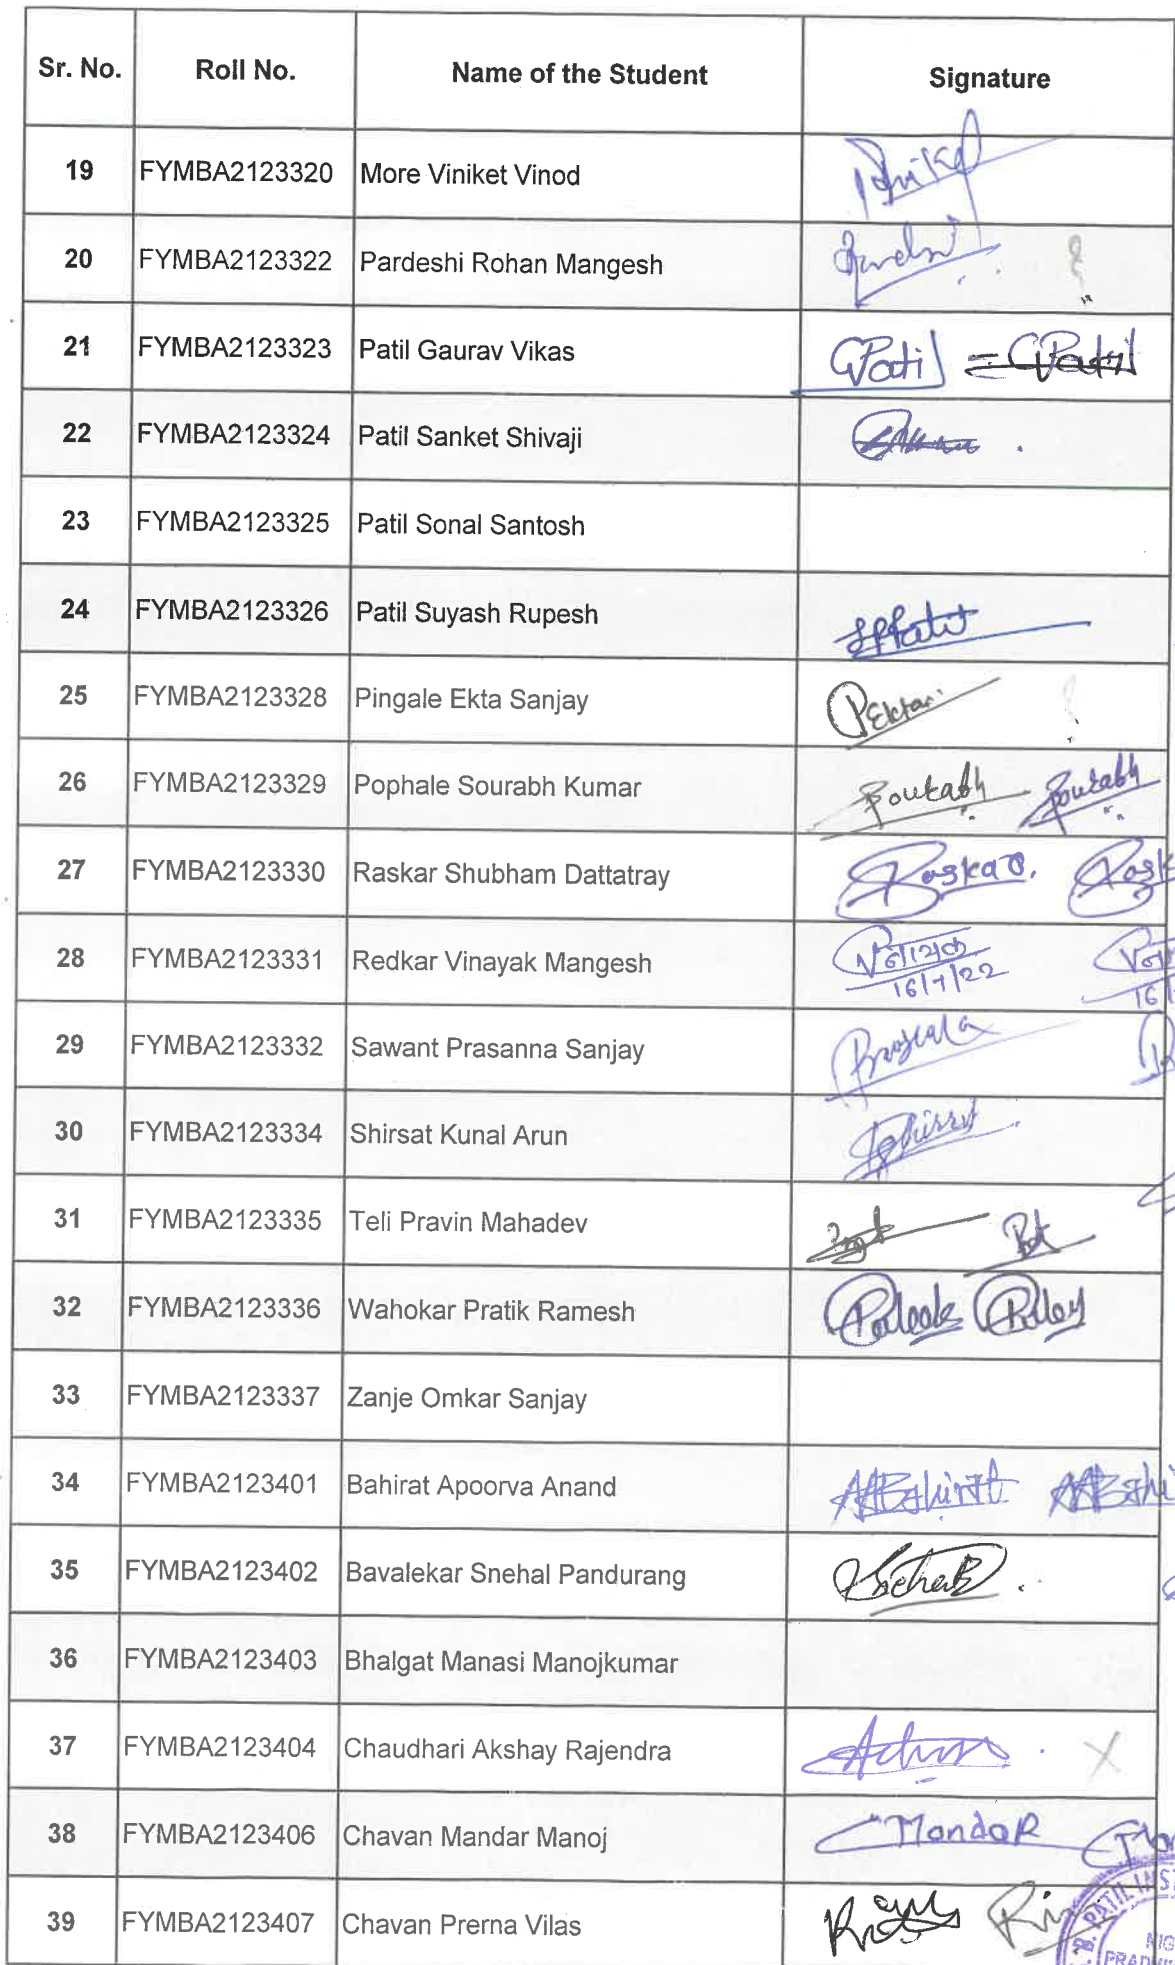 Sr. No. Roll No. Name of the Student Signature
19 FYMBA2123320 More Viniket Vinod
20 FYMBA2123322 Pardeshi Rohan Mangesh
21 FYMBA2123323 Patil Gaurav Vikas GPatil GPatil
22 FYMBA2123324 Patil Sanket Shivaji
23 FYMBA2123325 Patil Sonal Santosh
24 FYMBA2123326 Patil Suyash Rupesh
25 FYMBA2123328 Pingale Ekta Sanjay
26 FYMBA2123329 Pophale Sourabh Kumar Sourabh Sourabh
27 FYMBA2123330 Raskar Shubham Dattatray Raskar.
28 FYMBA2123331 Redkar Vinayak Mangesh 16/7/22
29 FYMBA2123332 Sawant Prasanna Sanjay
30 FYMBA2123334 Shirsat Kunal Arun
31 FYMBA2123335 Teli Pravin Mahadev
32 FYMBA2123336 Wahokar Pratik Ramesh
33 FYMBA2123337 Zanje Omkar Sanjay
34 FYMBA2123401 Bahirat Apoorva Anand AABahirat
35 FYMBA2123402 Bavalekar Snehal Pandurang
36 FYMBA2123403 Bhalgat Manasi Manojkumar
37 FYMBA2123404 Chaudhari Akshay Rajendra
38 FYMBA2123406 Chavan Mandar Manoj MandaR
39 FYMBA2123407 Chavan Prerna Vilas
PATIL